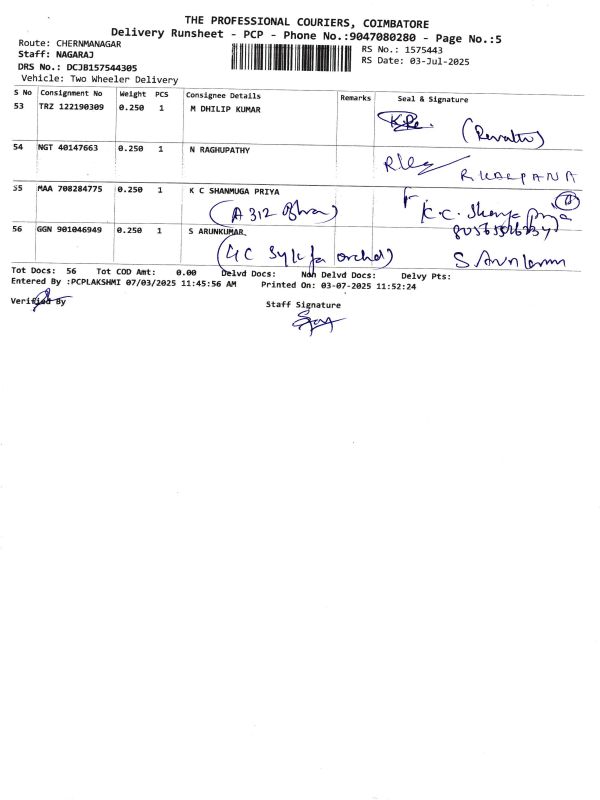 THE PROFESSIONAL COURIERS, COIMBATORE
Delivery Runsheet - PCP - Phone No.:9047080280 - Page No.:5
Route: CHERNMANAGAR
Staff: NAGARAJ
DRS No.: DCJB157544305
Vehicle: Two Wheeler Delivery
RS No.: 1575443
RS Date: 03-Jul-2025
S No Consignment No Weight PCS Consignee Details Remarks Seal & Signature
53 TRZ 122190309 0.250 1 M DHILIP KUMAR
(Revathi)
54 NGT 40147663 0.250 1 N RAGHUPATHY
R KALPANA
55 MAA 708284775 0.250 1 K C SHANMUGA PRIYA
(A 312 ) K.C.
56 GGN 901046949 0.250 1 S ARUNKUMAR
(4C orchid) S. Arun
Tot Docs: 56 Tot COD Amt: 0.00 Delvd Docs: Non Delvd Docs: Delvy Pts:
Entered By :PCPLAKSHMI 07/03/2025 11:45:56 AM Printed On: 03-07-2025 11:52:24
Verified By Staff Signature